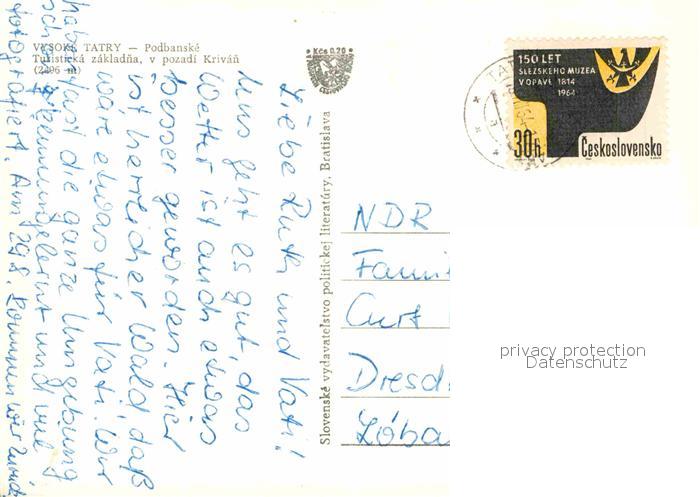 VYSOKÉ TATRY — Podbanské
Turistická základňa, v pozadí Kriváň
(2496 m)
Kčs 0,20
Liebe Ruth und Vati!
Uns geht es gut, das
Wetter ist auch etwas
besser geworden. Hier
ist herrlicher Wald, daß
wäre etwas für Vati. Wir
haben fast die ganze Umgebung
schon kennengelernt und viel
fotografiert. Am 29.8. kommen wir zurück
Slovenské vydavateľstvo politickej literatúry, Bratislava
150 LET
SLEZSKÉHO MUZEA
V OPAVĚ 1814
1964
30h
Československo
NDR
Famil
Curt
Dresd
Löba
privacy protection
Datenschutz